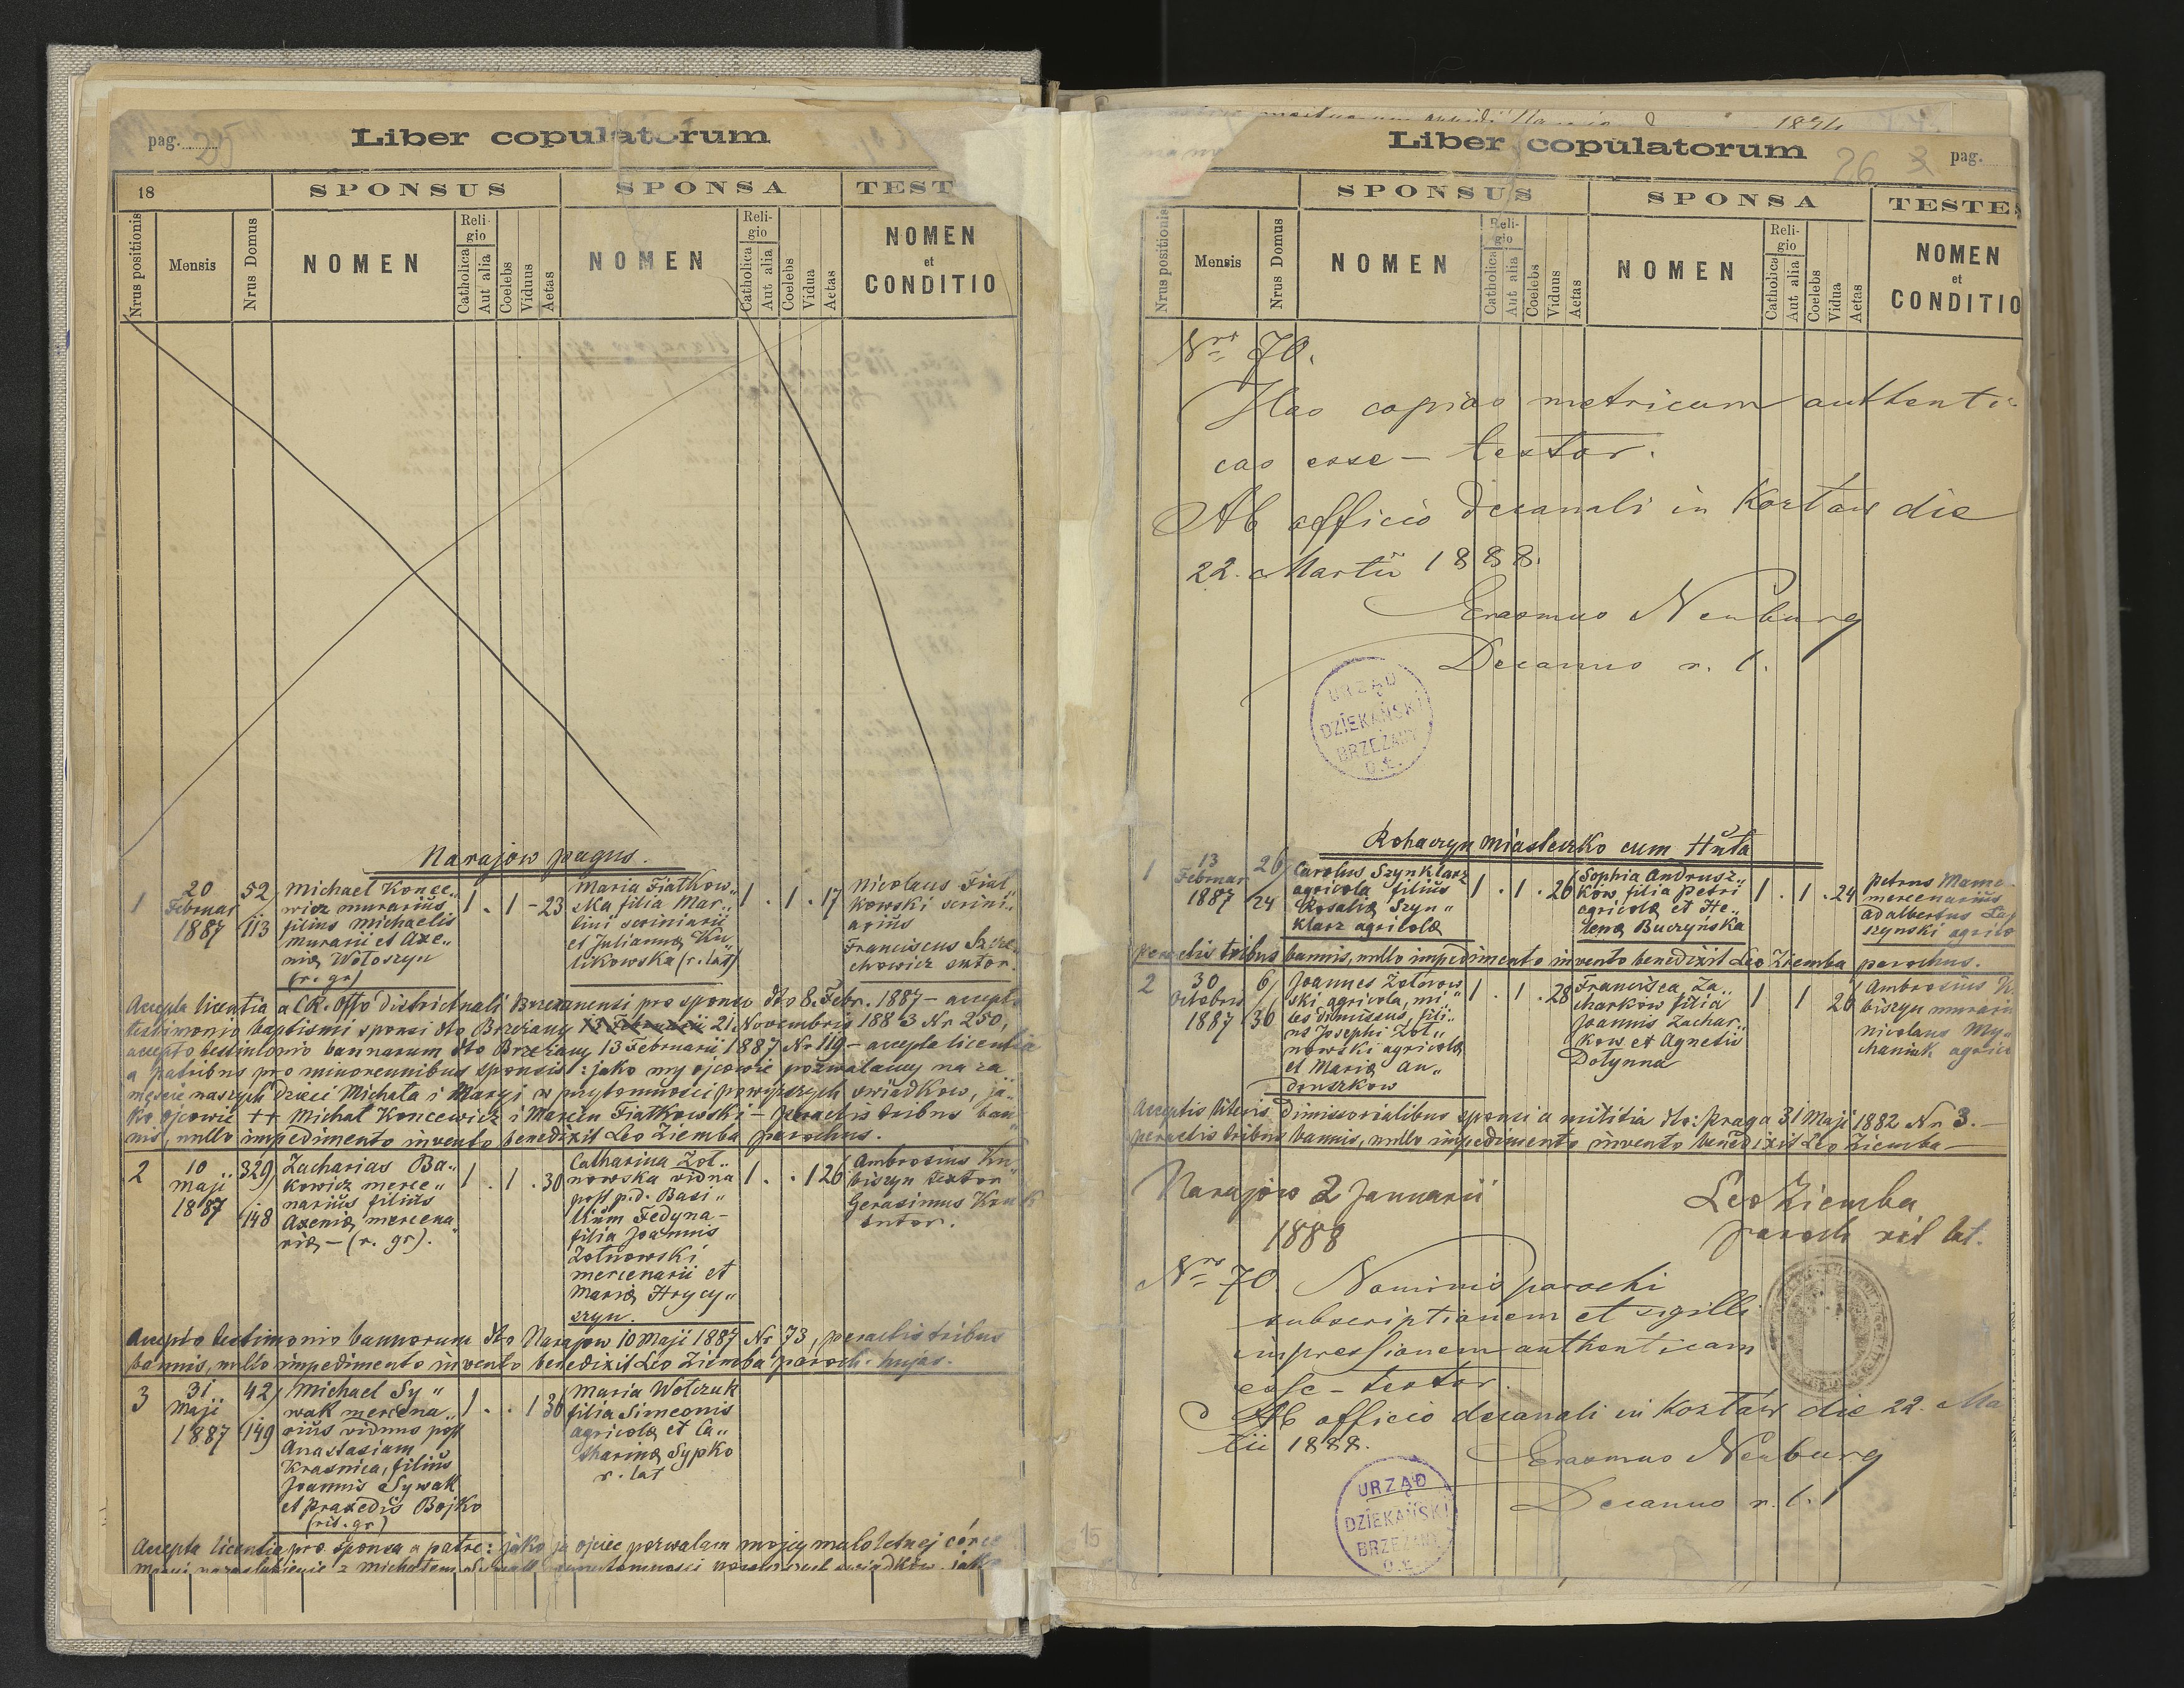 pag. 25
Liber copulatorum
18
SPONSUS
SPONSA
TEST
Nrus positionis
Mensis
Nrus Domus
NOMEN
Religio
Catholica
Aut alia
Coelebs
Viduus
Aetas
NOMEN
Religio
Catholica
Aut alia
Coelebs
Vidua
Aetas
NOMEN
et
CONDITIO
Narajow pagus.
1
20
Februar
1887
52/
113
Michael Konce„
wicz murarius
filius Michaelis
murarii et Axe„
niæ Wołoszyn
(r. gr)
1 . 1 - 23
Maria Fiatkow„
ska filia Mar„
tini scriniarii
et Juliannæ Ku„
likowska (r. lat)
1 . 1 . 17
Nicolaus Fiat„
kowski scrini„
arius
Franciscus
sutor.
Accepta licentia a CR. Offo districtuali Brzezanensi pro sponso dto 8. Febr. 1887 - accepto
testimonjo baptismi sponsi dto Brzeżany 21 Novembris 1883 Nr 250,
accepto testimonio bannorum dto Brzeżany 13 Februarii 1887 Nr 119 - accepta licentia
a patribus pro minorennibus sponsis: jako my ojcowie pozwalamy na za„
męscie naszych dzieci Michała i Maryi w przytomnosci powyższych swiadkow, ja„
ko ojcowie ++ Michał Koncewicz i Marcin Fiatkowski - peractis tribus ban„
nis, nullo impedimento invento benedixit Leo Ziemba parochus.
2
10
Maji
1887
329/
148
Zacharias Ba„
kowicz merce„
narius filius
Axeniæ mercena„
riæ - (r. gr).
1 . 1 . 30
Catharina Zoł„
nowska vidua
post p.d. Basi„
lium Fedyna -
filia Joannis
Zołnowski
mercenarii et
Mariæ Hrycy„
szyn.
1 . . 1 26
Ambrosius Ku„
biszyn textor
Gerasimus
sutor.
Accepto testimonio bannorum dto Narajow 10 Maji 1887 Nr 73, peractis tribus
bannis, nullo impedimento invento benedixit Leo Ziemba paroch. hujas.
3
31
Maji
1887
42/
149
Michael Sy„
wak mercena„
rius viduus post
Anastasiam
Krasnica, filius
Joannis Sywak
et Praxedis Bojko
(rit. gr)
1 . . 1 36
Maria Wołczuk
filia Simeonis
agricolæ et Ca„
tharinæ Sypko
r. lat
Accepta licentia pro sponsa a patre: jako ja ojciec pozwalam mojej małoletnej córce
Maryi zaslubienie z Michałem Sywak
Liber copulatorum
26 3 pag.
SPONSUS
SPONSA
TESTES
Nrus positionis
Mensis
Nrus Domus
NOMEN
Religio
Catholica
Aut alia
Coelebs
Viduus
Aetas
NOMEN
Religio
Catholica
Aut alia
Coelebs
Vidua
Aetas
NOMEN
et
CONDITIO
Nrs 70.
Has copias metricum authenti-
cas esse - testor.
Ab officio decanali in Kozłów die
22. Martii 1888.
Erasmus Neuburg
Decanus r. l.
URZĄD
DZIEKAŃSKI
BRZEŻANY
O.Ł.
Rohaczyn Miasteczko cum Huta
1
13
Februar
1887
26/
24
Carolus Szynklarz
agricola filius
Rosaliæ Szyn„
klarz agricolæ
1 . 1 . 26
Sophia Andrusz„
ków, filia Petri
agricolæ et He„
lenæ Buczyńska
1 . 1 . 24
Petrus
mercenarius
Adalbertus
szynski agrico
peractis tribus bannis, nullo impedimento invento benedixit Leo Ziemba parochus.
2
30
Octobris
1887
6/
30
Joannes Zołonow„
ski agricola, mi„
les dimissus, fili„
us Josephi Zoł„
nowski agricolæ
et Mariæ An„
druszkow
1 . 1 . 28
Francisca Za„
charkow filia
Joannis Zachar„
kow et Agnetis
Dołynna
1 1 26
Ambrosius K
biszyn murari
Nicolaus My„
chaniuk agrico
Acceptis literis dimissorialibus sponsi a militia dto: Praga 31 Maji 1882 Nr 3. -
peractis tribus bannis, nullo impedimento invento benedixit Leo Ziemba -
Narajow 2 Januarii
1888
Leo Ziemba
paroch rit lat.
Nrs 70. Nominis parochi
subscriptionem et sigilli
impressionem authenticam
esse - testor.
Ab officio decanali in Kozłów die 22. Ma
tii 1888.
Erasmus Neuburg
Decanus r. l.
URZĄD
DZIEKAŃSKI
BRZEŻANY
O.Ł.
15